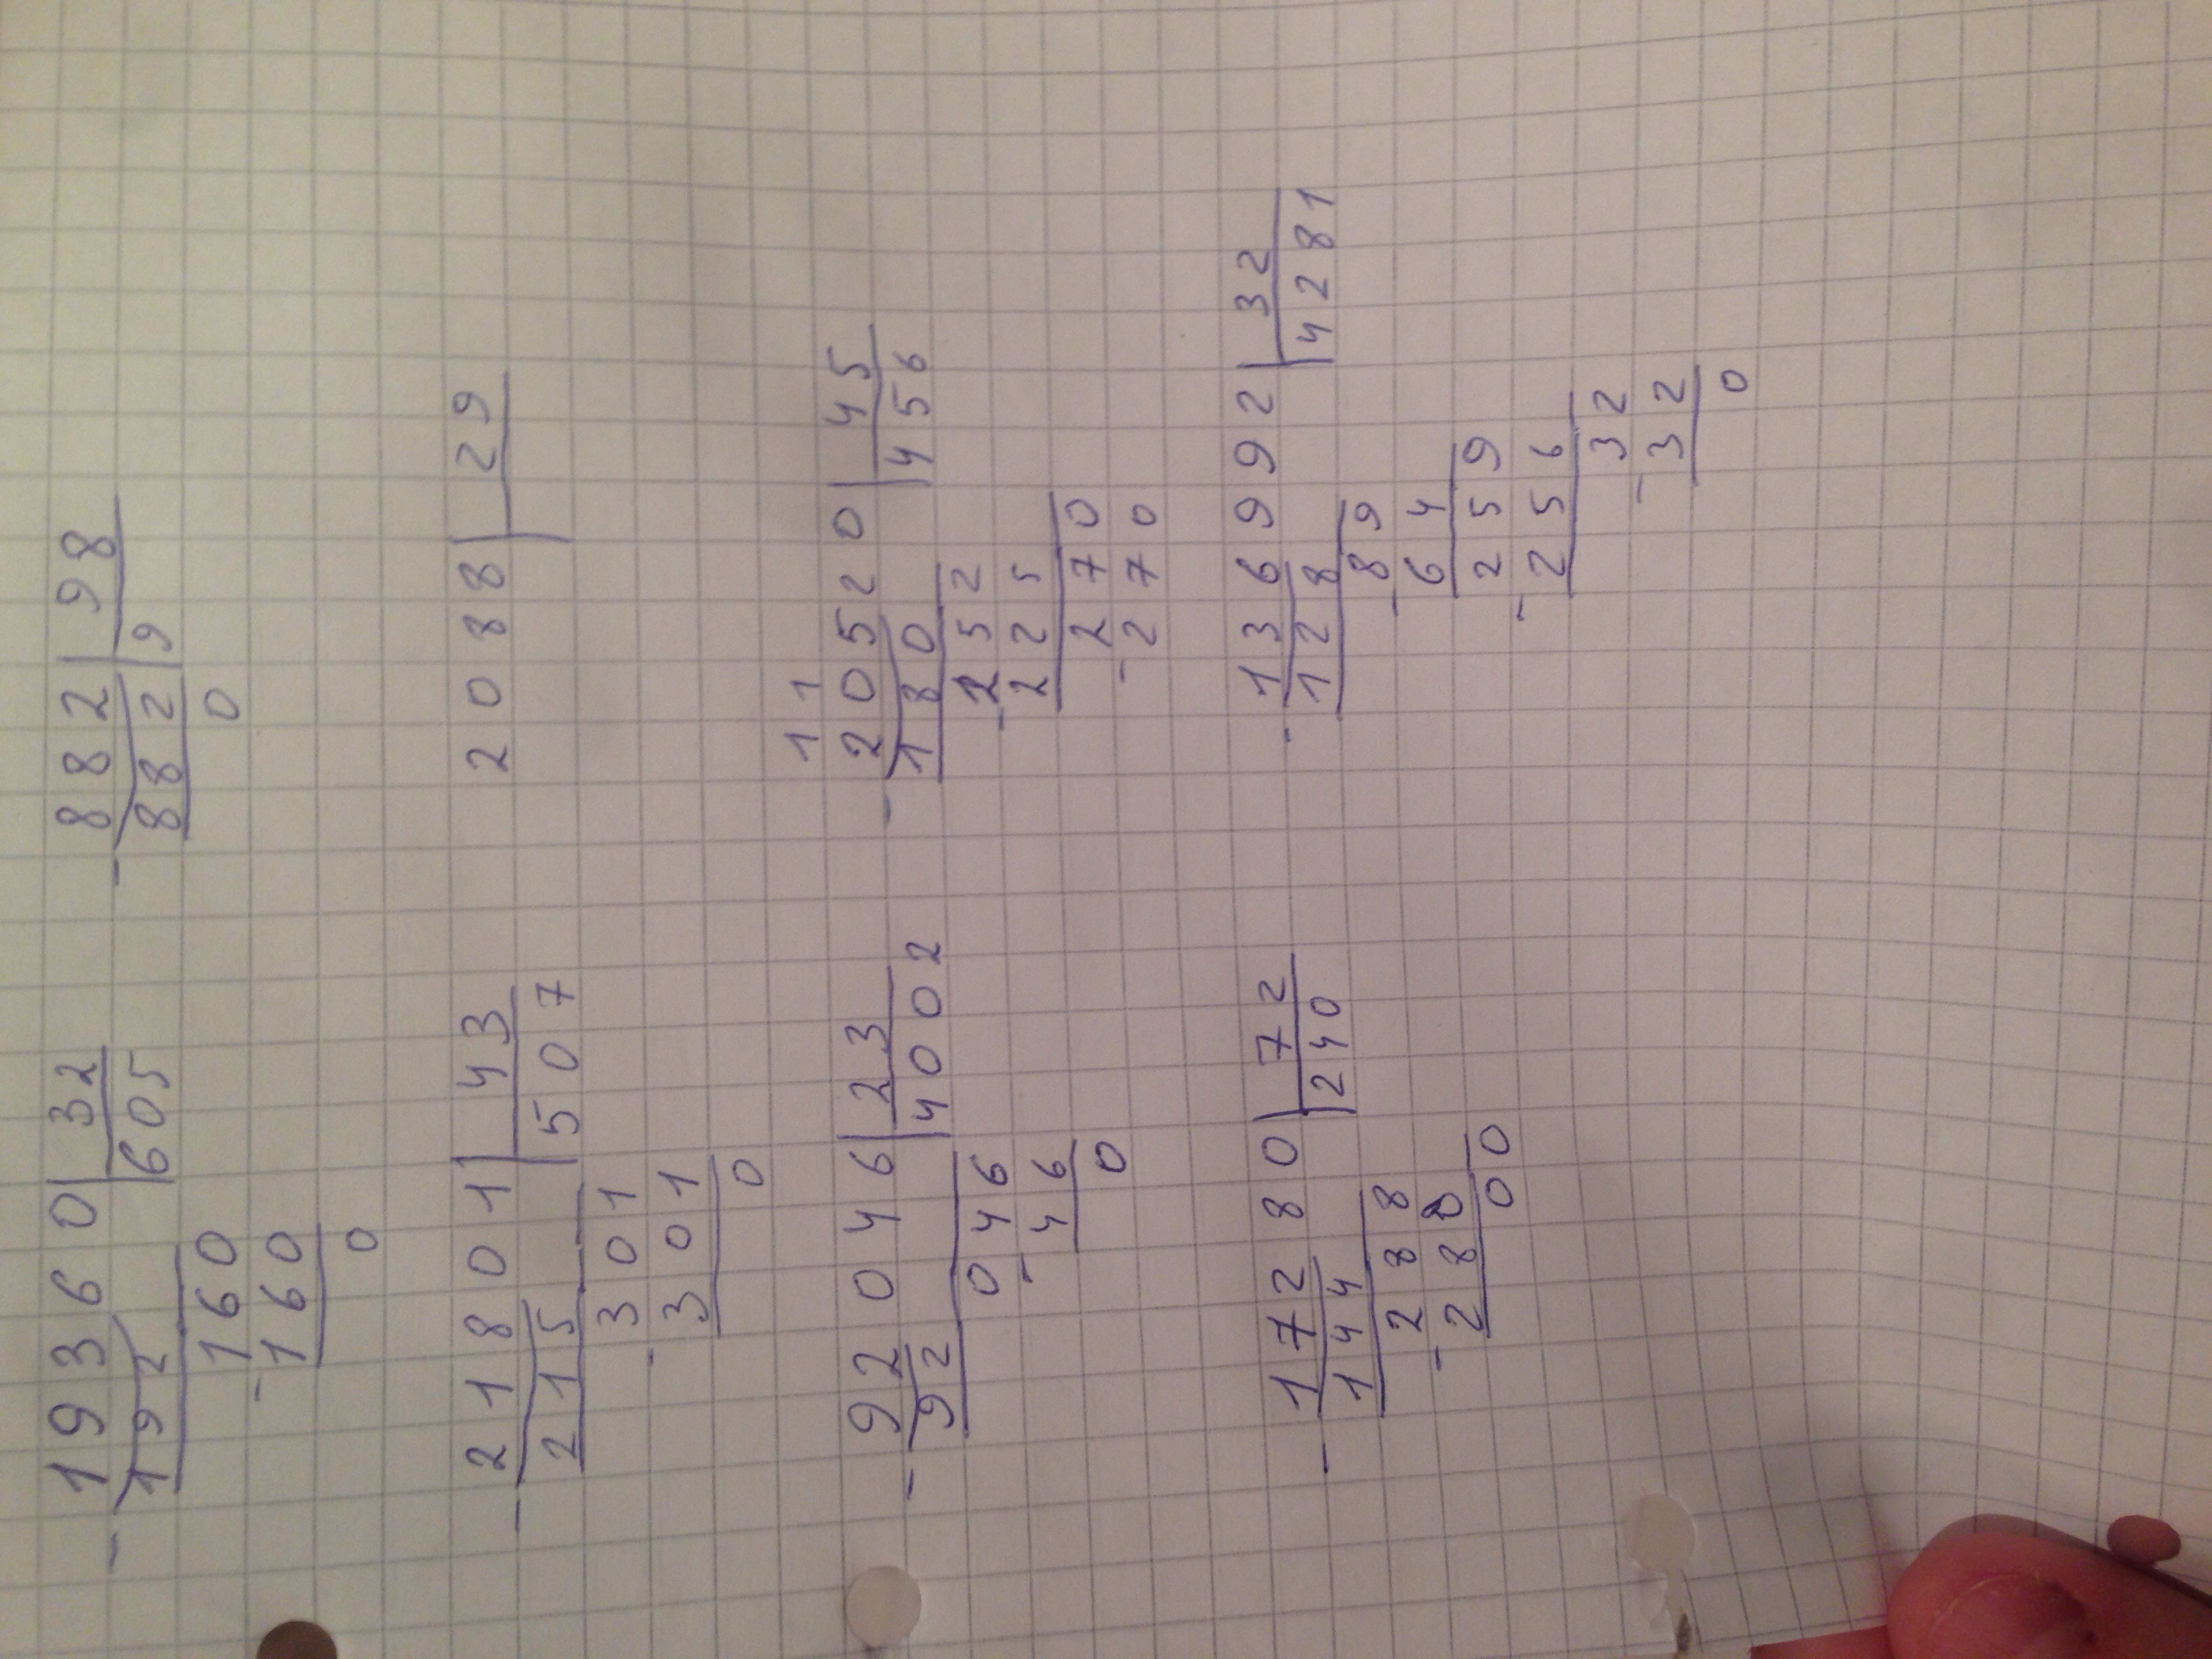 19360 | 32    882 | 98
192 | 605    882 | 9
160    0
160
0
21801 | 43    2088 | 29
215 | 507
301
301
0
11
92046 | 23    20520 | 45
92 | 4002    180 | 456
046    252
46    225
0    270
270
17280 | 72    136992 | 32
144 | 240    128 | 4281
288    89
288    64
00    259
256
32
32
0